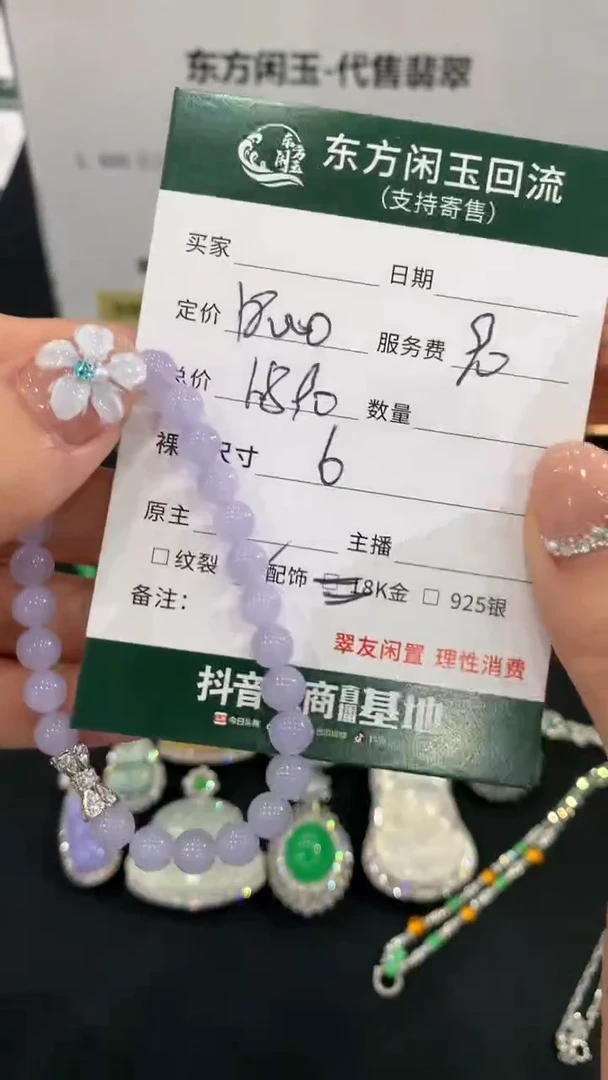 东方闲玉-代售翡翠
东方闲玉
东方闲玉回流
(支持寄售)
买家
日期
定价
服务费
总价 1890
数量
裸 尺寸 6
原主
主播
□纹裂 配饰 □ 18K金 □ 925银
备注:
翠友闲置 理性消费
抖音 商直播基地
今日头条
抖音